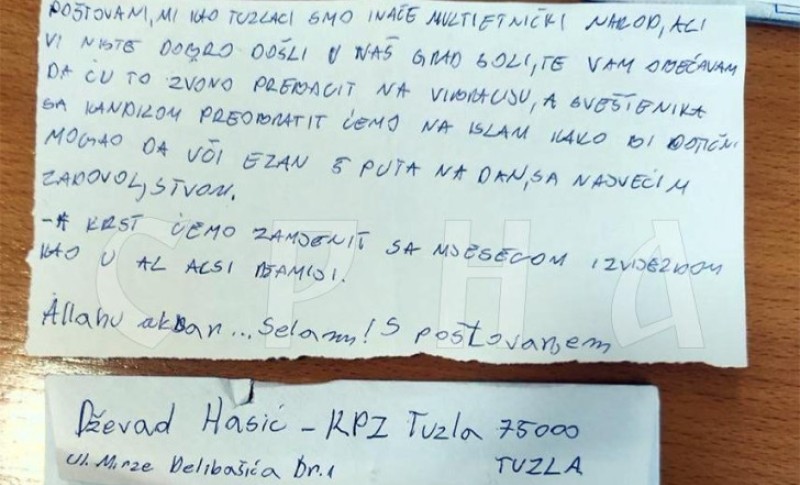 POŠTOVANI, MI KAO TUZLACI SMO INAČE MULTIETNIČKI NAROD, ALI
VI NISTE DOBRO DOŠLI U NAŠ GRAD SOLI, TE VAM OBEĆAVAM
DA ĆU TO ZVONO PREBACIT NA VIBRACIJU, A SVEŠTENIKA
SA KANDILOM PREOBRATIT ĆEMO NA ISLAM KAKO BI DOTIČNI
MOGAO DA UČI EZAN 5 PUTA NA DAN, SA NAJVEĆIM
ZADOVOLJSTVOM.
-A KRST ĆEMO ZAMJENIT SA MJESECOM I ZVIJEZDOM
KAO U AL DŽAMIJI.
Allahu akbar... Selam! S poštovanjem
СРНА
Dževad Hasić - KPZ Tuzla 75000
Ul. Mirze Delibašića Br.1 TUZLA